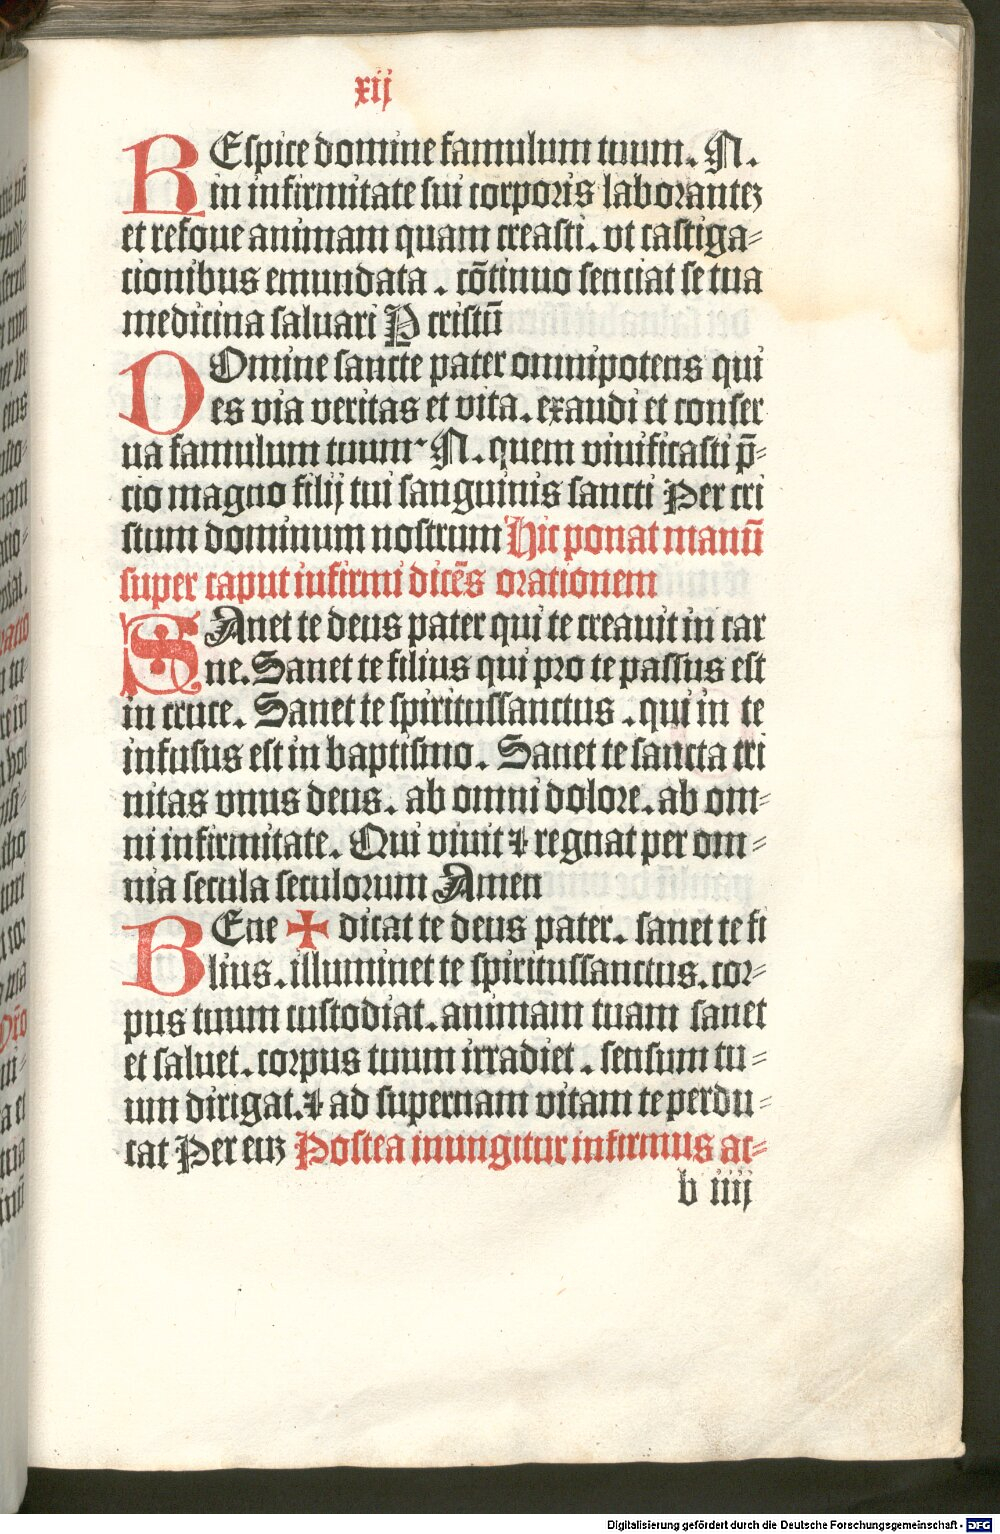 xij
REspice domine famulum tuum. N.
in infirmitate sui corporis laborantez
et refoue animam quam creasti. vt castiga⸗
cionibus emundata. cōtinuo senciat se tua
medicina saluari P cristū
DOmine sancte pater omnipotens qui
es via veritas et vita. exaudi et conser
ua famulum tuum N. quem viuificasti p̄⸗
cio magno filij tui sanguinis sancti Per cri
stum dominum nostrum Hic ponat manū
super caput infirmi dicēs orationem
SAnet te deus pater qui te creauit in car
ne. Sanet te filius qui pro te passus est
in cruce. Sanet te spiritussanctus. qui in te
infusus est in baptismo. Sanet te sancta tri
nitas vnus deus. ab omni dolore. ab om⸗
ni infirmitate. Qui viuit ⁊ regnat per om⸗
nia secula seculorum Amen
BEne ✠ dicat te deus pater. sanet te fi
lius. illuminet te spiritussanctus. cor⸗
pus tuum custodiat. animam tuam sanet
et saluet. corpus tuum irradiet. sensum tu⸗
um dirigat. ⁊ ad supernam vitam te perdu⸗
cat Per eūz Postea inungitur infirmus ac⸗
b iiij
Digitalisierung gefördert durch die Deutsche Forschungsgemeinschaft - DFG